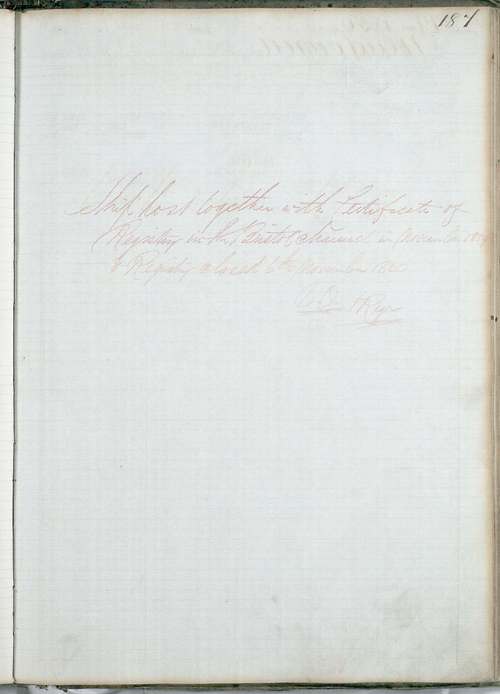 187
Ship lost together with Certificate of
Registry in the Bristol Channel in November
& Registry closed 6th November 18
Regr